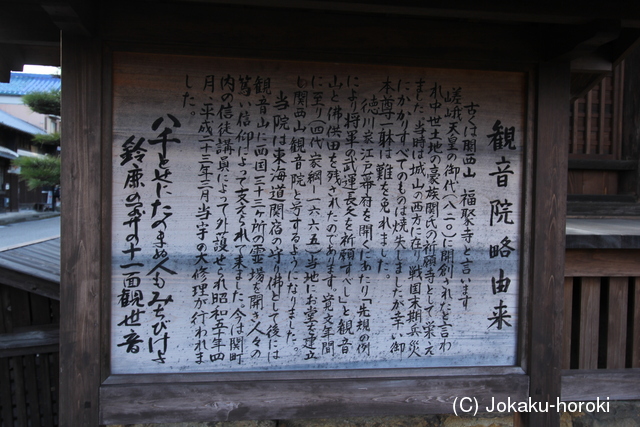 観音院略由来
古くは関西山 福聚寺と言います
嵯峨天皇の御代(八二〇)に開創されたと言わ
れ中世土地の豪族関氏の祈願寺として栄え
ました。当時は城山の西方に在り戦国末期兵災
にかかりすべてのものは焼失しましたが幸い御
本尊一躰は難を免れました。
徳川家江戸幕府を開くにあたり「先規の例
により将軍の武運長久を祈願すべし」と観音
山と佛供田を残されたのであります。寛文年間
に至り四代家綱(一六六五)当地にお堂を建立
し関西山観音院と号するようになりました。
当院は東海道関宿の守り佛として後には
観音山に西国三十三ヶ所の霊場を開き人々の
篤い信仰によって支えられて来ました。今は関町
内の信徒講員によって外護せられ昭和五年四
月、平成二十三年三月当宇の大修理が行われま
した。
八千とせにたのまぬ人もみちびけさ
鈴鹿の章の十一面観世音
(C) Jokaku-horoki